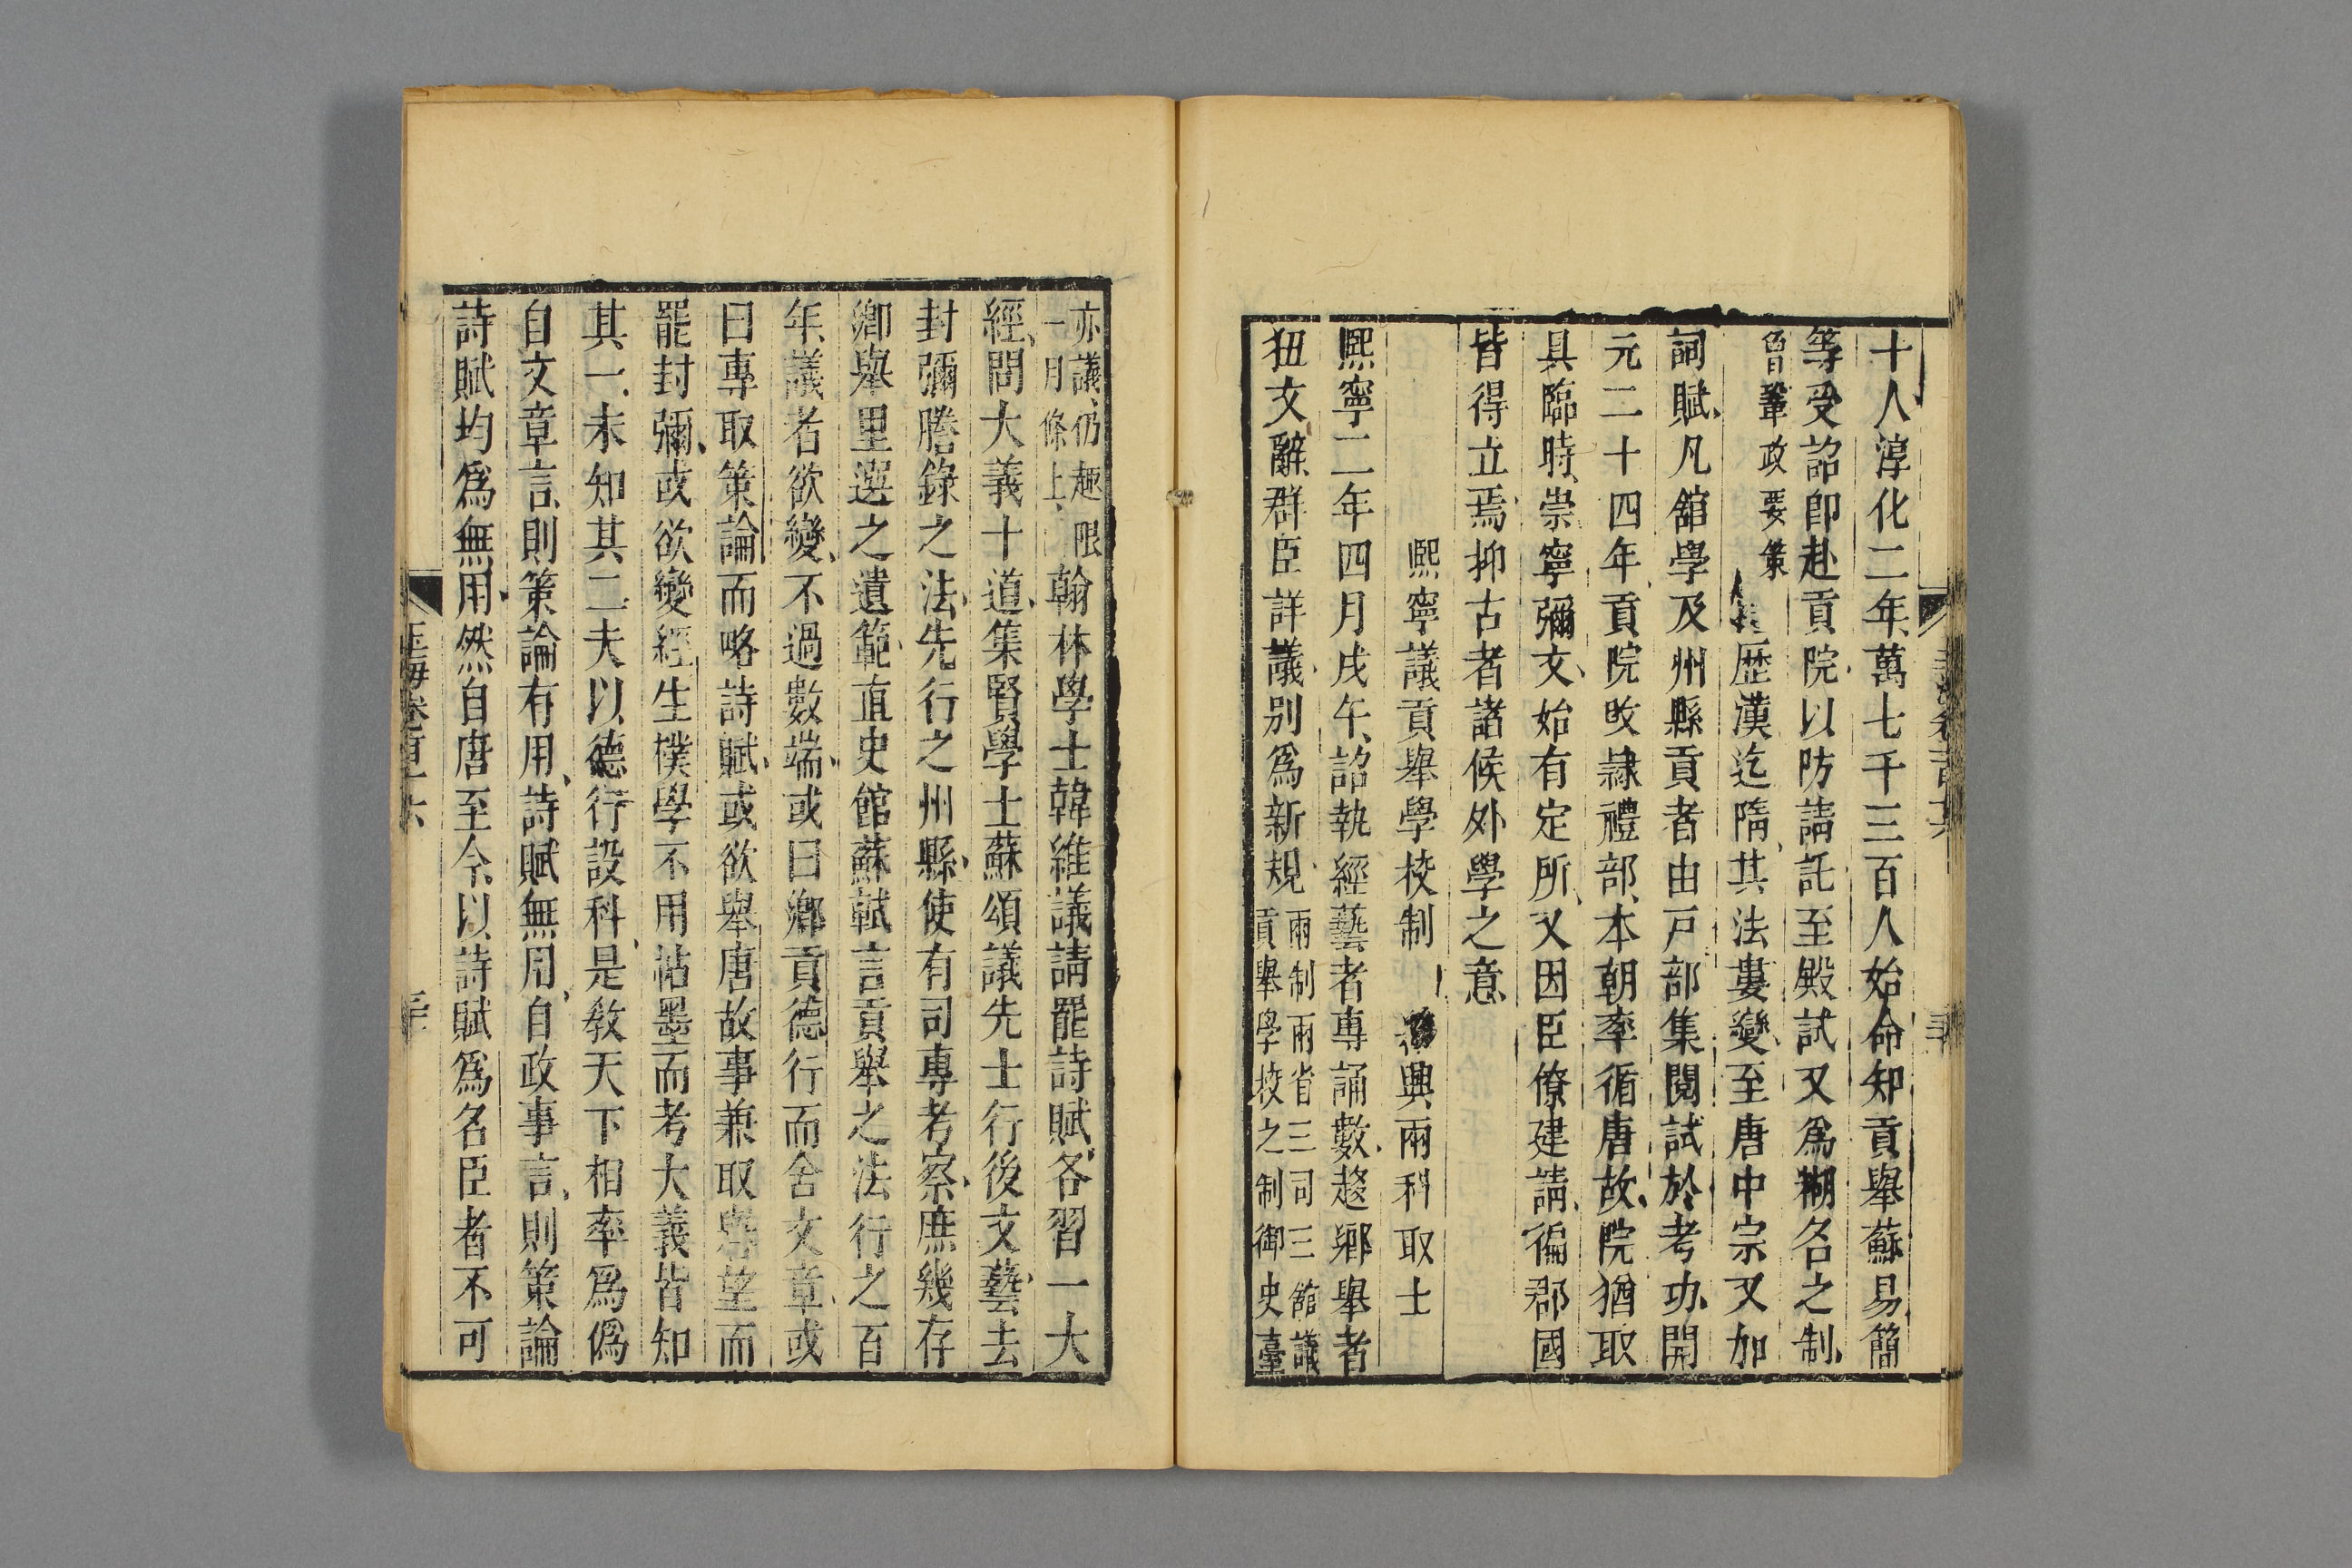 十人淳化二年萬七千三百人始命知貢舉蘇易簡
等受詔卽赴貢院以防請託至殿試又為糊名之制
曾鞏政要策
歷漢迄隋其法婁變至唐中宗又加
詞賦凡舘學及州縣貢者由戸部集閱試於考功開
元二十四年貢院改隸禮部本朝率循唐故院猶取
具臨時崇寧彌文始有定所又因臣僚建請徧郡國
皆得立焉抑古者諸侯外學之意
熙寧議貢舉學校制
興兩科取士
熙寧二年四月戊午詔執經藝者專誦數趍鄉舉者
狃文辭群臣詳議別為新規
兩制兩省三司三館議
貢舉學校之制御史臺
亦議仍趣限
一月條上
翰林學士韓維議請罷詩賦各習一大
經問大義十道集賢學士蘇頌議先士行後文藝去
封彌謄錄之法先行之州縣使有司專考察庶幾存
鄉舉里選之遺範直史館蘇軾言貢舉之法行之百
年議者欲變不過數端或曰鄉貢德行而舍文章或
曰專取策論而略詩賦或欲舉唐故事兼取譽望而
罷封彌或欲變經生樸學不用帖墨而考大義皆知
其一未知其二夫以德行設科是教天下相率為偽
自文章言則策論有用詩賦無用自政事言則策論
詩賦均為無用然自唐至今以詩賦為名臣者不可
玉海卷百十六